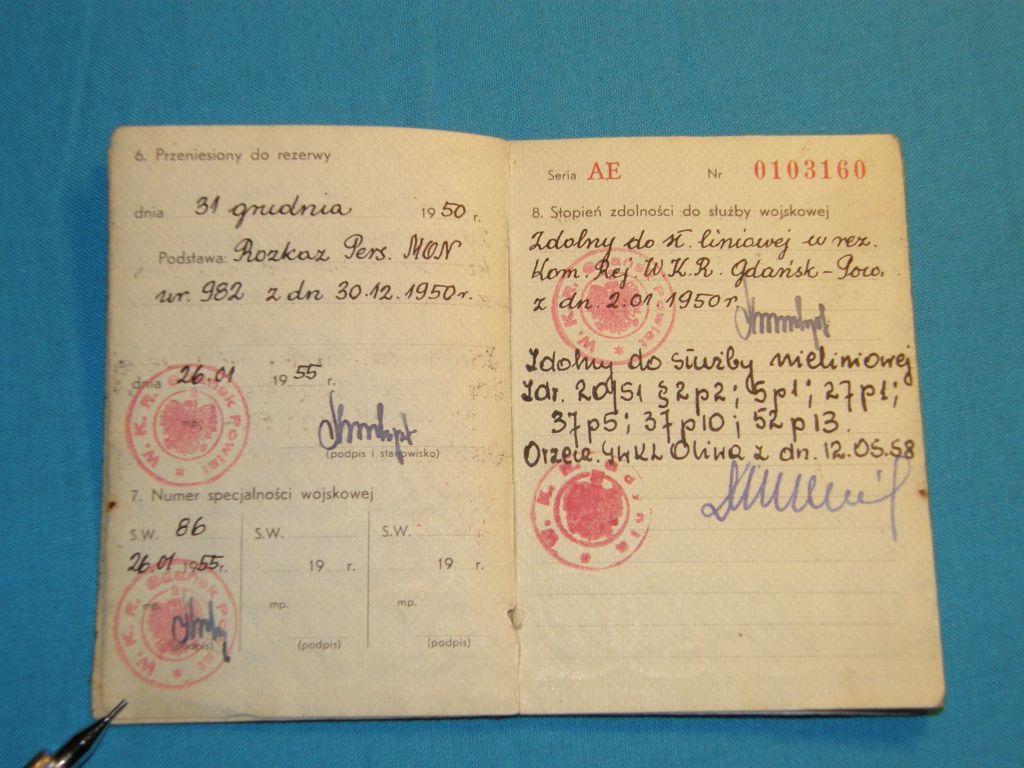 6. Przeniesiony do rezerwy
dnia 31 grudnia 1950 r.
Podstawa: Rozkaz Pers. MON
nr. 982 z dn 30.12.1950r.
dnia 26.01 1955 r.
W.K.R. Gdańsk Powiat *
(podpis i stanowisko)
7. Numer specjalności wojskowej
S.W. 86 S.W. S.W.
26.01 1955r. 19 r. 19 r.
mp. mp. mp.
W.K.R. Gdańsk Powiat *
(podpis) (podpis) (podpis)
Seria AE Nr 0103160
8. Stopień zdolności do służby wojskowej
Zdolny do sł. liniowej w rez.
Kom. Rej. W.K.R. Gdańsk-Pow.
z dn. 2.01.1950r.
W.K.R. Gdańsk Powiat *
Zdolny do służby nieliniowej
Zdr. 20/51 § 2p2; 5p1; 27p1;
37p5; 37p10; 52p13.
Orzecz. Oliwa z dn. 12.05.58
W.K.R. Gdynia *